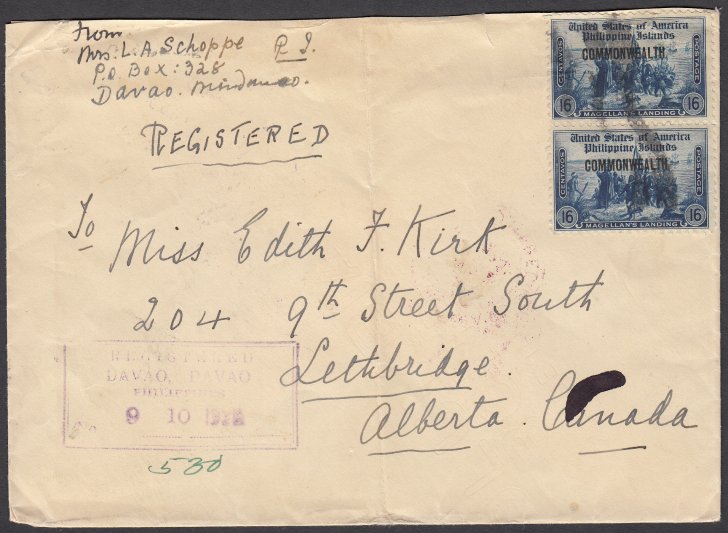 From
Mrs. L. A. Schoppe P. I.
P.O. Box: 328
Davao. Mindanao.
REGISTERED
United States of America
Philippine Islands
COMMONWEALTH
CENTAVOS
POSTAGE
16 16
MAGELLAN'S LANDING
United States of America
Philippine Islands
COMMONWEALTH
CENTAVOS
POSTAGE
16 16
MAGELLAN'S LANDING
To
Miss Edith F. Kirk
204 9th Street South
Lethbridge.
Alberta. Canada
REGISTERED
DAVAO, DAVAO
PHILIPPINES
No 9 10
530